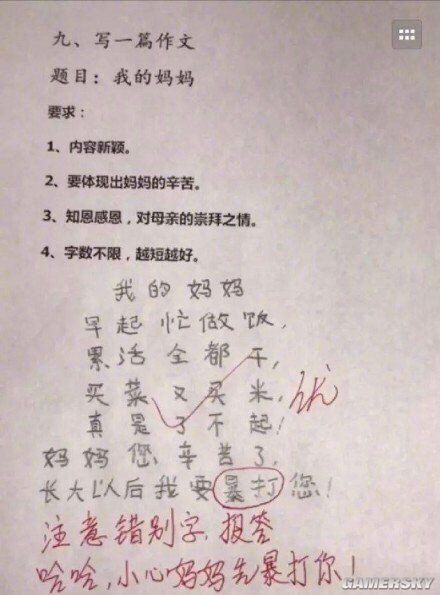 九、写一篇作文
题目：我的妈妈
要求：
1、内容新颖。
2、要体现出妈妈的辛苦。
3、知恩感恩，对母亲的崇拜之情。
4、字数不限，越短越好。
我的妈妈
早起忙做饭，
累活全都干，
买菜又买米，
真是了不起！
优
妈妈您辛苦了，
长大以后我要暴打您！
注意错别字，报答
哈哈，小心妈妈先暴打你！
GAMERSKY